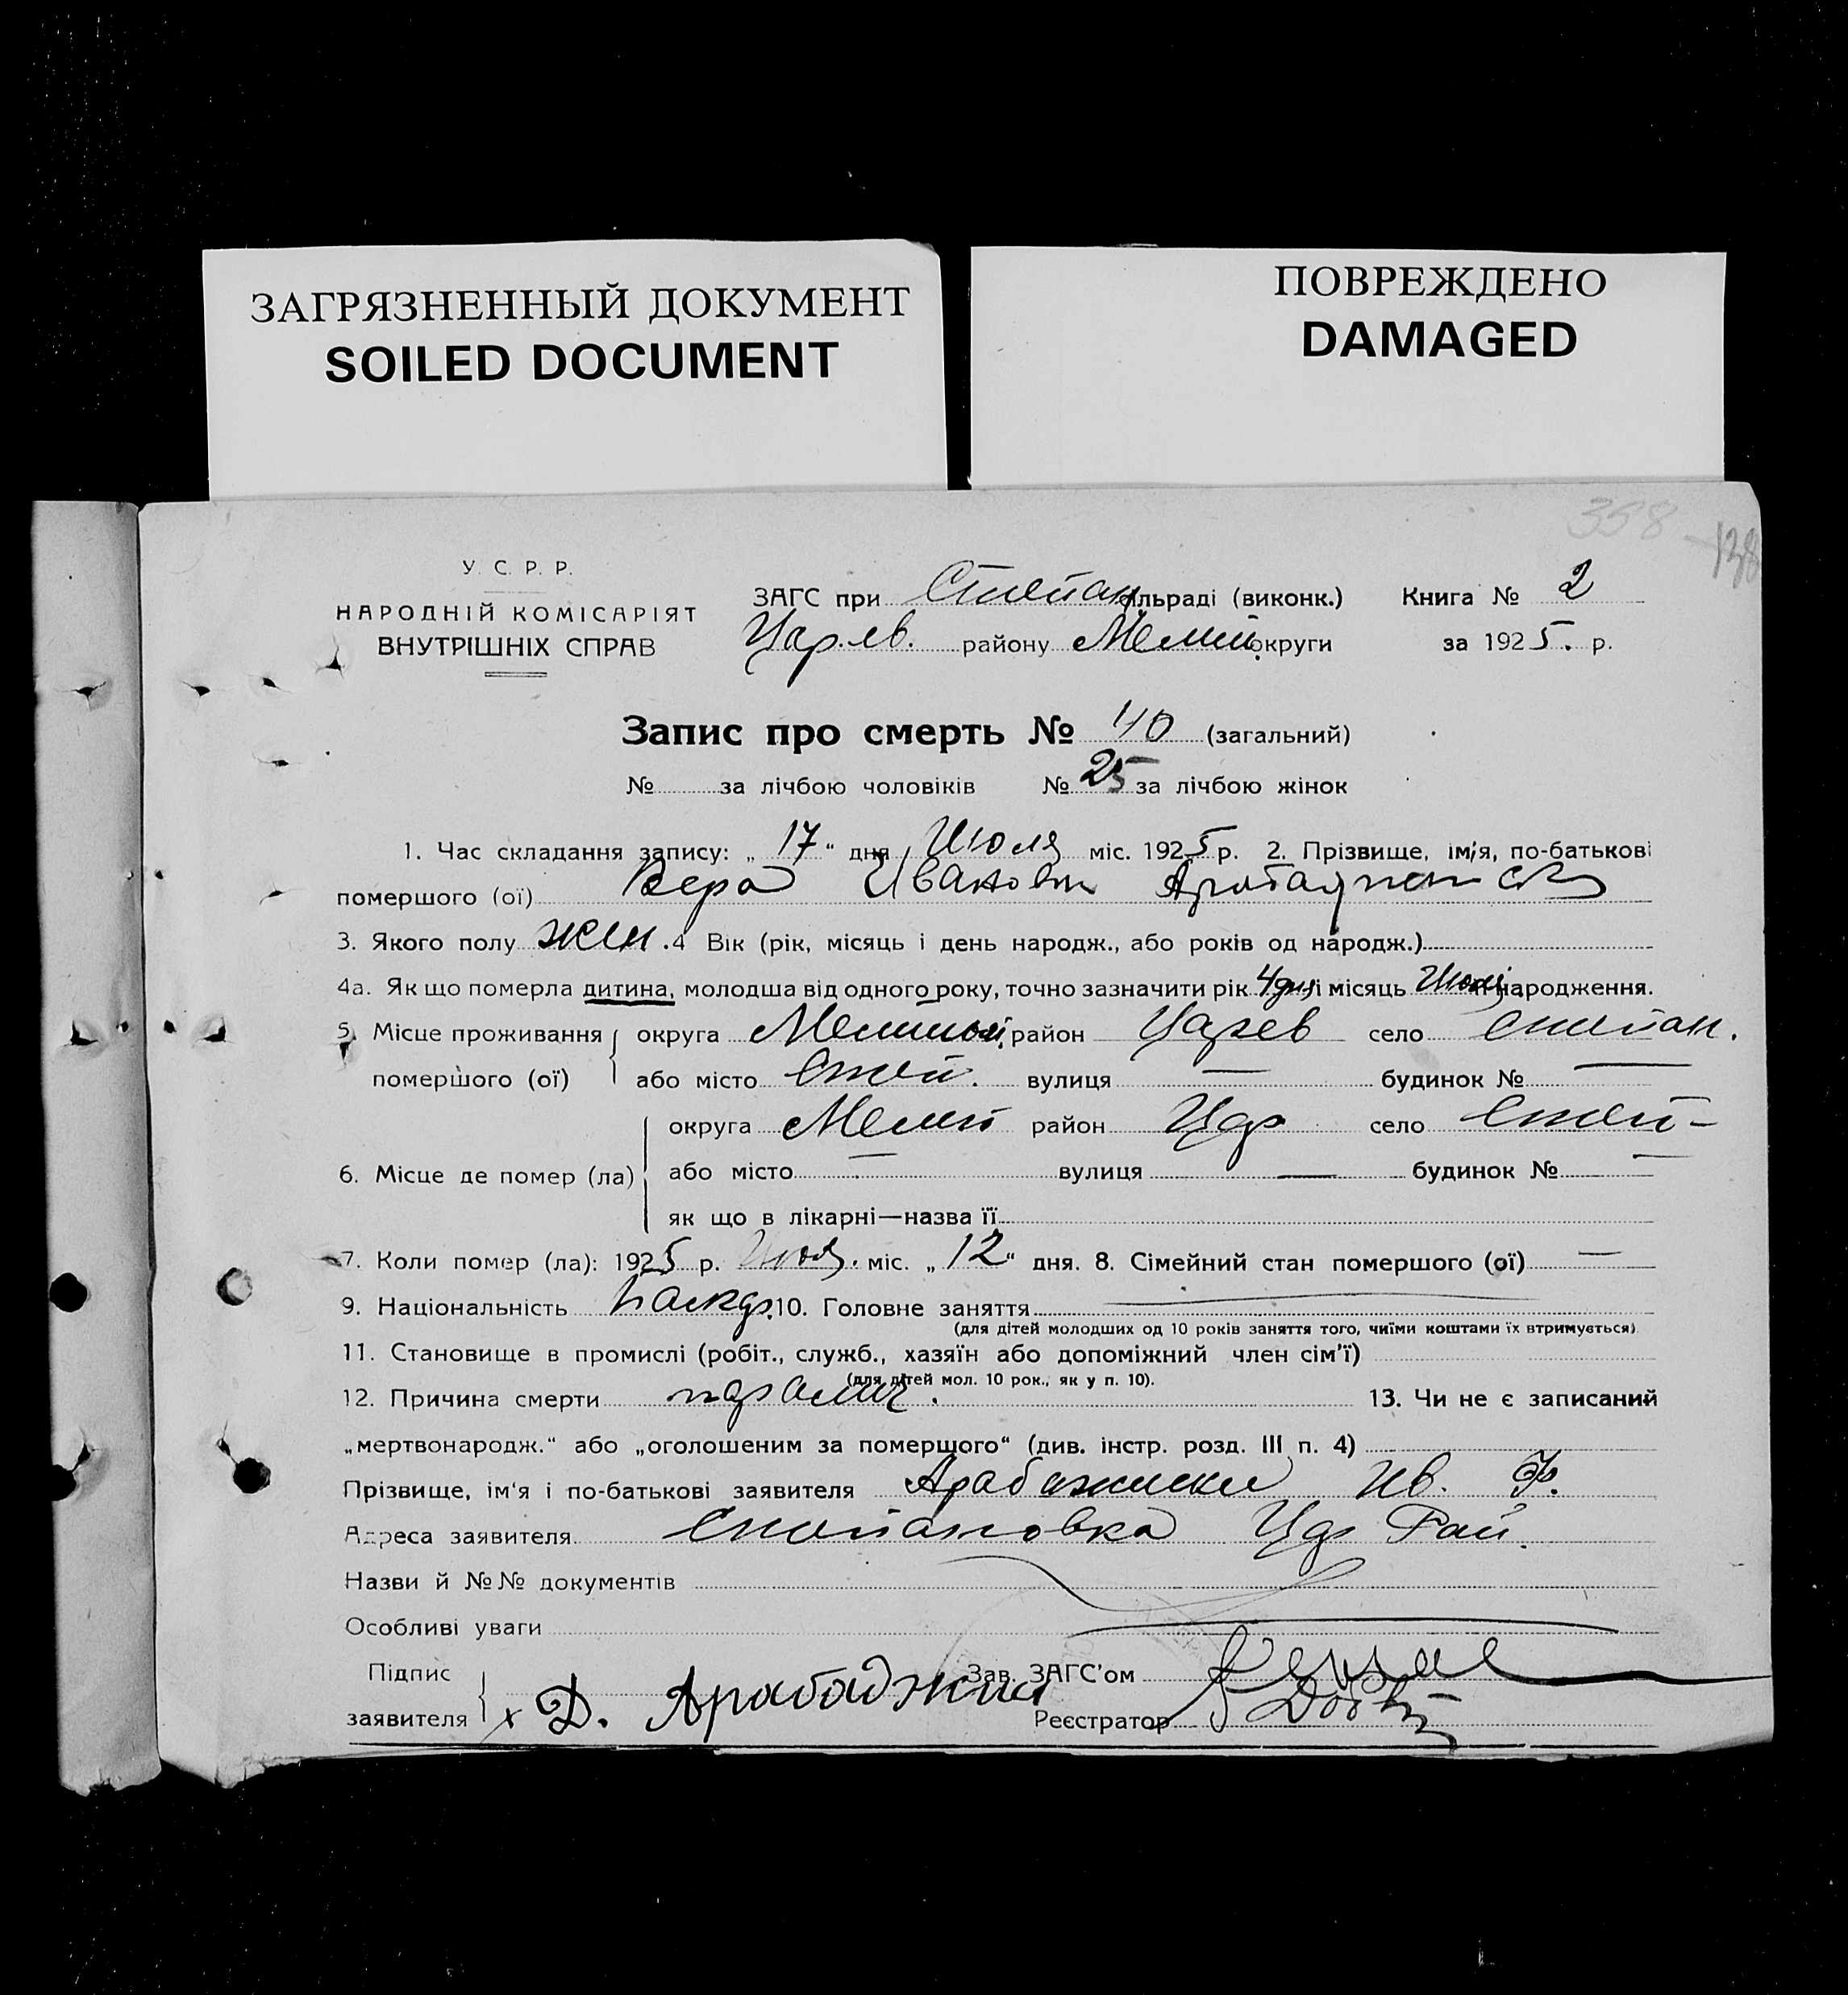 ЗАГРЯЗНЕННЫЙ ДОКУМЕНТ
SOILED DOCUMENT
ПОВРЕЖДЕНО
DAMAGED
358 138
У. С. Р. Р.
НАРОДНІЙ КОМІСАРІЯТ
ВНУТРІШНІХ СПРАВ
ЗАГС при Степан сільраді (виконк.) Книга № 2
Царев. району Мелит. округи за 1925. р.
Запис про смерть № 40 (загальний)
№ за лічбою чоловіків № 25 за лічбою жінок
1. Час складання запису: „17“ дня Июля міс. 1925 р. 2. Прізвище, ім'я, по-батькові
помершого (ої) Вера Ивановн
3. Якого полу жен. 4 Вік (рік, місяць і день народж., або років од народж.)
4а. Як що померла дитина, молодша від одного року, точно зазначити рік 4 дня і місяць народження.
5. Місце проживання округа Мелитоп. район Царев село Степан.
помершого (ої) або місто Степ. вулиця — будинок № —
округа Мелит район Цар село Степ-
6. Місце де помер (ла) або місто — вулиця — будинок № —
як що в лікарні—назва її
7. Коли помер (ла): 1925 р. Июля. міс. „12“ дня. 8. Сімейний стан помершого (ої) —
9. Національність 10. Головне заняття —
(для дітей молодших од 10 років заняття того, чиїми коштами їх втримується)
11. Становище в промислі (робіт., служб., хазяїн або допоміжний член сім'ї)
(для дітей мол. 10 рок., як у п. 10).
12. Причина смерти паралич. 13. Чи не є записаний
„мертвонародж.“ або „оголошеним за помершого“ (див. інстр. розд. III п. 4)
Прізвище, ім'я і по-батькові заявителя Арабаджики Ив. Ф.
Адреса заявителя Степановка Цар Рай.
Назви й №№ документів
Особливі уваги
Підпис Зав. ЗАГС'ом
заявителя х Д. Арабаджи Реєстратор